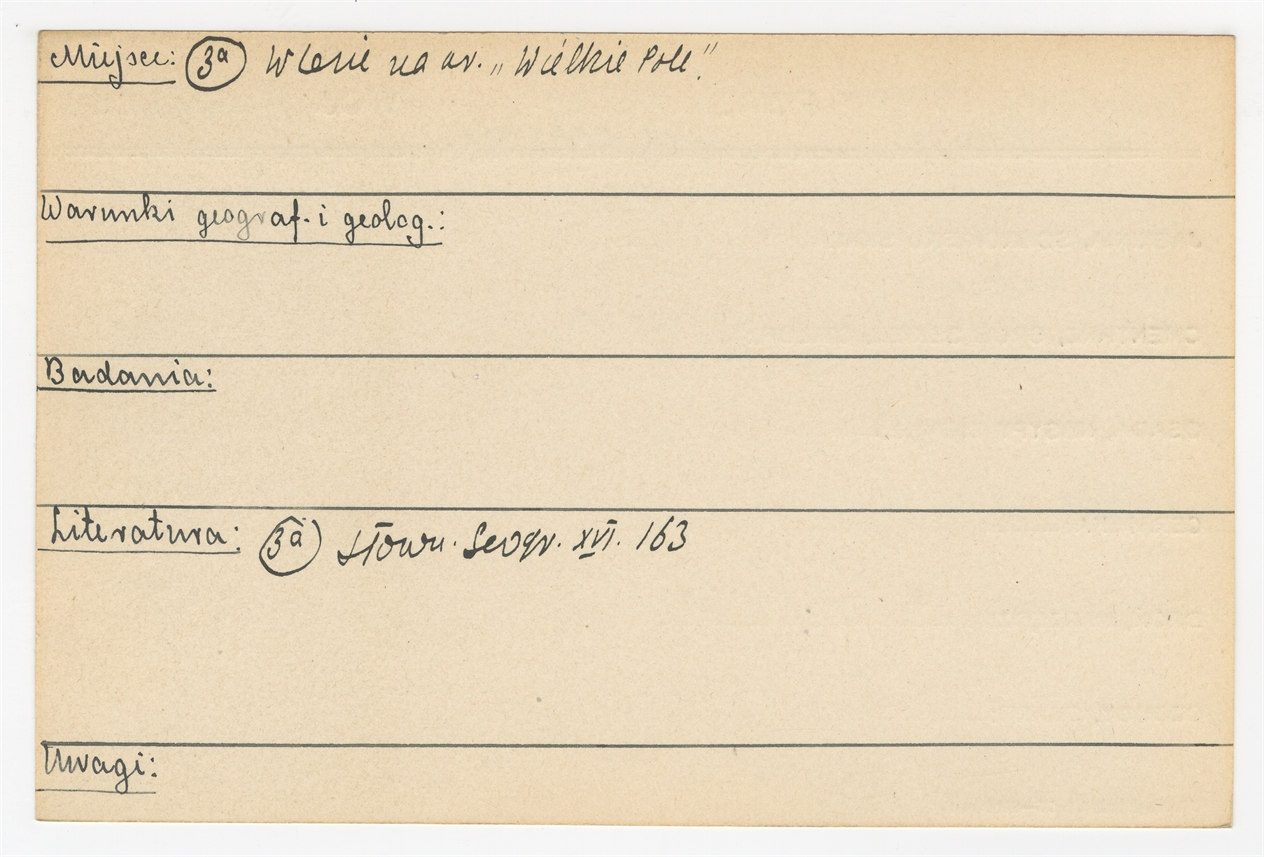 Miejsce: 3a W lesie na ur. „Wielkie Pole"
Warunki geograf. i geolog.:
Badania:
Literatura: 3a Słown. Geogr. XVI. 163
Uwagi: